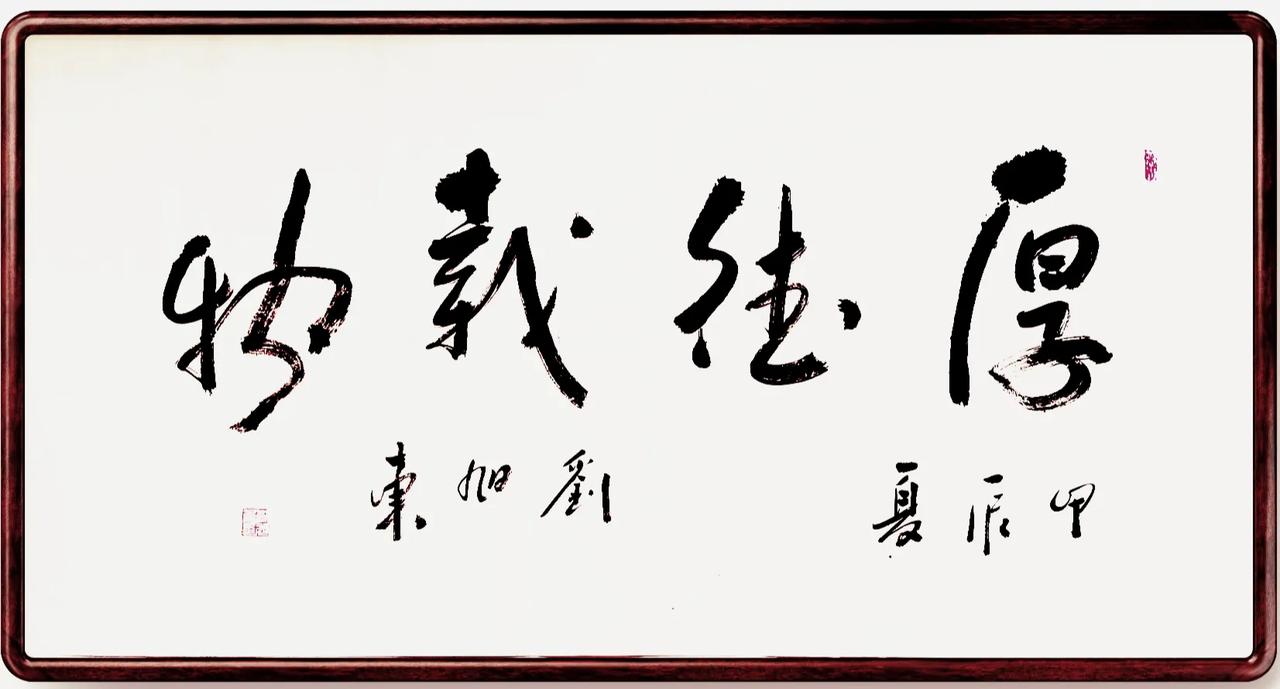 厚德載物
甲辰夏
劉旭東